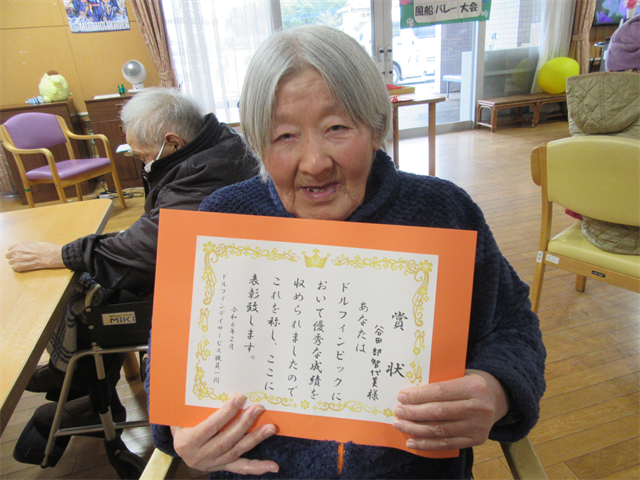 風船バレー大会
賞状
谷田部智代美様
あなたは
ドルフィンピックに
おいて優秀な成績を
収められましたので
これを称し、ここに
表彰致します。
令和6年2月
ドルフィンデイサービス職員一同
Miki